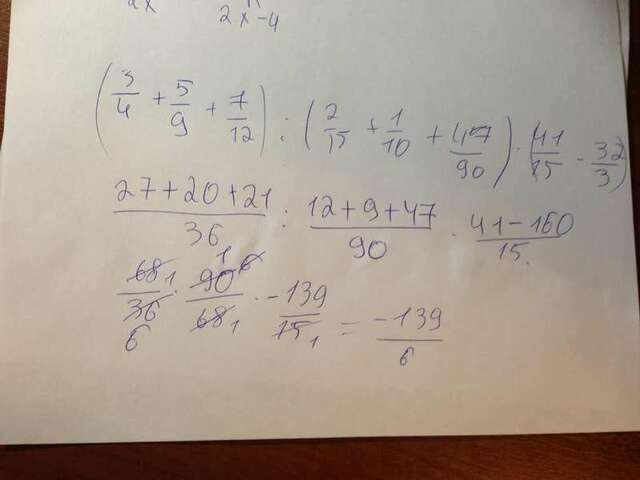 2x 2x-4
(3/4 + 5/9 + 7/12) : (2/15 + 1/10 + 47/90) · (41/15 - 32/3)
27+20+21/36 : 12+9+47/90 · 41-160/15.
68 1/36 6 · 1 90 6/68 1 · -139/15 1 = -139/6